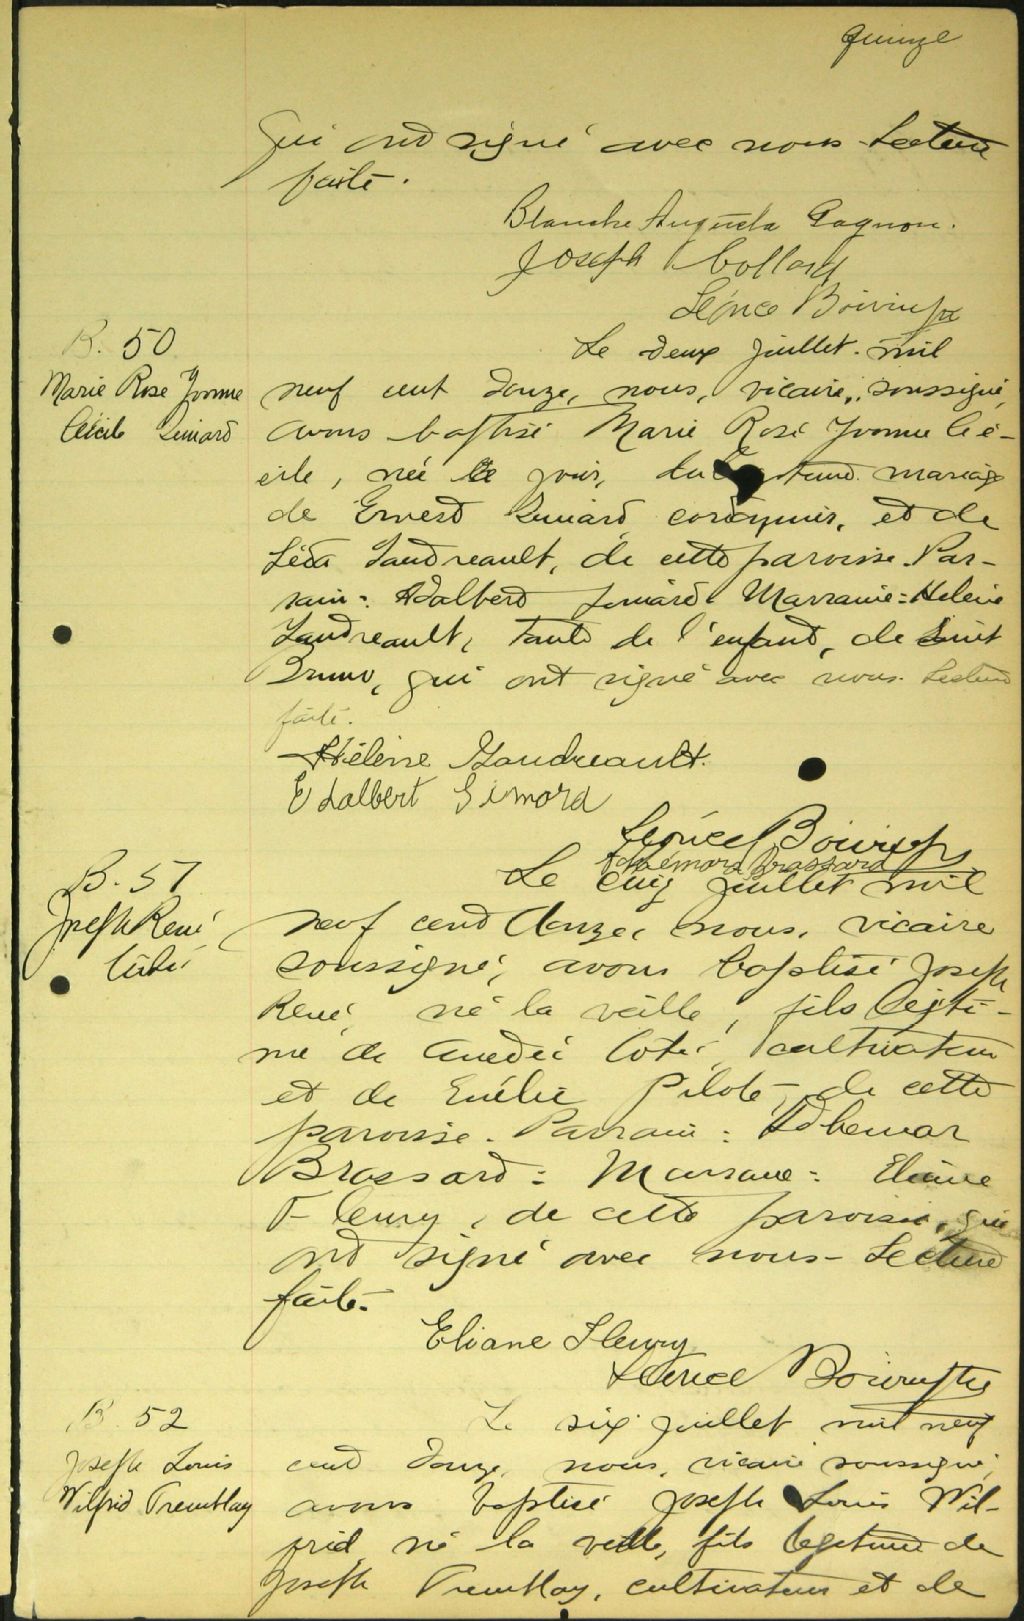 quinze
qui ont signé avec nous Lecture
faite.
Blanche Augusta Gagnon.
Joseph Collard
Léonce Boivin ptr
B. 50
Marie Rose Yvonne
Cécile Simard
Le deux juillet mil
neuf cent douze, nous, vicaire, soussigné,
avons baptisé Marie Rose Yvonne Cé-
cile, née le jour, du mariage
de Ernest Simard et de
Léda Gaudreault, de cette paroisse. Par-
rain: Adalbert Simard Marraine: Hélène
Gaudreault, tante de l'enfant, de Saint
Bruno, qui ont signé avec nous. Lecture
faite.
Hélène Gaudreault.
Edalbert Simard
Léonce Boivin ptr
Adhémard Brassard
B. 51
Joseph René
Côté
Le cinq juillet mil
neuf cent douze, nous, vicaire
soussigné, avons baptisé Joseph
René, né la veille, fils légiti-
me de Amédé Côté, cultivateur
et de Emélie Pilote, de cette
paroisse. Parrain: Adhemar
Brassard: Marraine: Eliane
Fleury, de cette paroisse, qui
ont signé avec nous - Lecture
faite.
Eliane Fleury
Léonce Boivin ptre
B. 52
Joseph Louis
Wilfrid Tremblay
Le six juillet mil neuf
cent douze, nous, vicaire soussigné,
avons baptisé Joseph Louis Wil-
frid, né la veille, fils légitime de
Joseph Tremblay, cultivateur et de